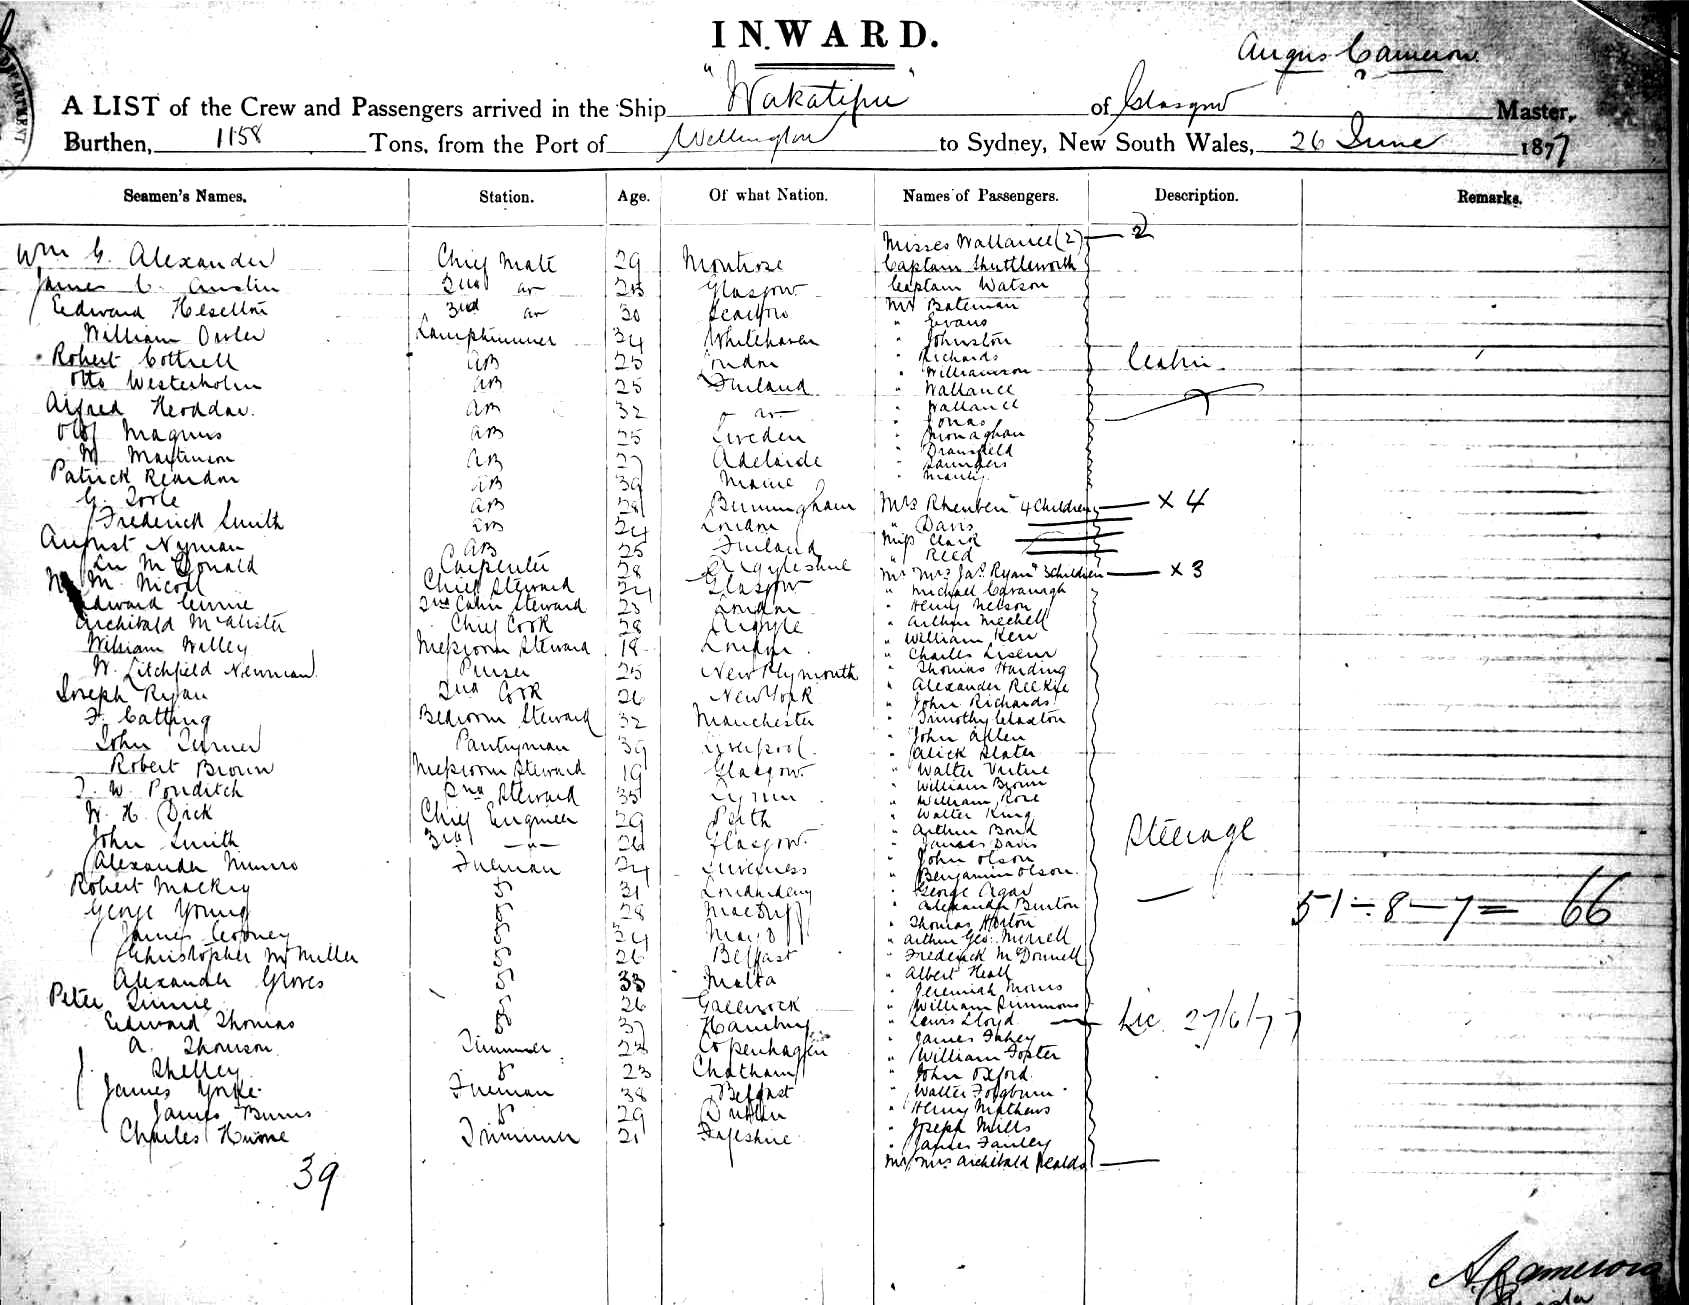 INWARD.
Angus Cameron
A LIST of the Crew and Passengers arrived in the Ship "Wakatipu" of Glasgow Master,
Burthen, 1158 Tons, from the Port of Wellington to Sydney, New South Wales, 26 June 1877
Seamen's Names. Station. Age. Of what Nation. Names of Passengers. Description. Remarks.
Wm C. Alexander Chief Mate 29 Montrose
James C. Austin 2nd do Glasgow
Edward Heseltine 3rd do 30
William Lamptrimmer 34 Whitehaven
Robert Cottrell AB 25 London
Otto Westerholm AB 25 Finland
Alfred AB 32 do
Olof Magnus AB 25 Sweden
M Martinson AB 27 Adelaide
Patrick Reardon AB 39
G. Toole AB 28 Birmingham
Frederick Smith AB 24 London
August Nyman AB 25 Finland
McDonald Carpenter 28 Argyleshire
M. Nicoll Chief Steward 24 Glasgow
Edward 2nd Cabin Steward 23 London
Archibald McAlister Chief Cook 28 Argyle
William Walley Messroom Steward 18 London
W. Litchfield Newman Purser 25 New Plymouth
Joseph Ryan 2nd Cook 26 New York
F. Catting Bedroom Steward 32 Manchester
John Turner Pantryman 39 Liverpool
Robert Brown Messroom Steward 19 Glasgow
W. Ponditch 2nd Steward 35
W. H. Dick Chief Engineer 29 Perth
John Smith 3rd -"- 26 Glasgow
Alexander Munro Fireman 24 Inverness
Robert Mackey Do 31 Londonderry
George Young Do 28 Macduff
James Cooney Do 24 Mayo
Christopher McMiller Do 26 Belfast
Alexander Groves Do 33 Malta
Peter Do 26 Greenock
Edward Thomas Do 37 Hamburg
A. Thomson Trimmer 28 Copenhagen
Shelley Do 23 Chatham
James Yorke Fireman 38 Belfast
James Burns Do 29 Dublin
Charles Hume Trimmer 21 Fifeshire
39
Misses Wallance (2) — 2
Captain Shuttleworth
Captain Watson
Mr Bateman
" Evans
" Johnston
" Richards
" Williamson
" Wallance
" Wallance
" Jonas
" Monaghan
" Bransfield
" Saunders
"
Cabin
Mrs Rhenben " 4 Children — x 4
" Davis
Miss Clark
" Reed
Mr Mrs Jas. Ryan " 3 Children — x 3
" Michael Cavanagh
" Henry Nelson
" Arthur Mechell
" William Kerr
" Charles
" Thomas Harding
" Alexander Reekie
" John Richards
" Timothy Claxton
" John Allen
" Alick Slater
" Walter Virtue
" William Brown
" William Rose
" Walter King
" Arthur Bond
" James Davis
" John Olson
" Benjamin Olson
" George Agar
" Alexander Burton
" Thomas Horton
" Arthur Geo. Merrell
" Frederick McDonnell
" Albert Heall
" Jeremiah Morris
" William Simmons
" Lewis Lloyd
" James Fahey
" William Foster
" John Oxford
" Walter
" Henry Mathews
" Joseph Mills
" James Fairley
Mr Mrs Archibald
Steerage
51 – 8 – 7 = 66
27/6/77
A Cameron